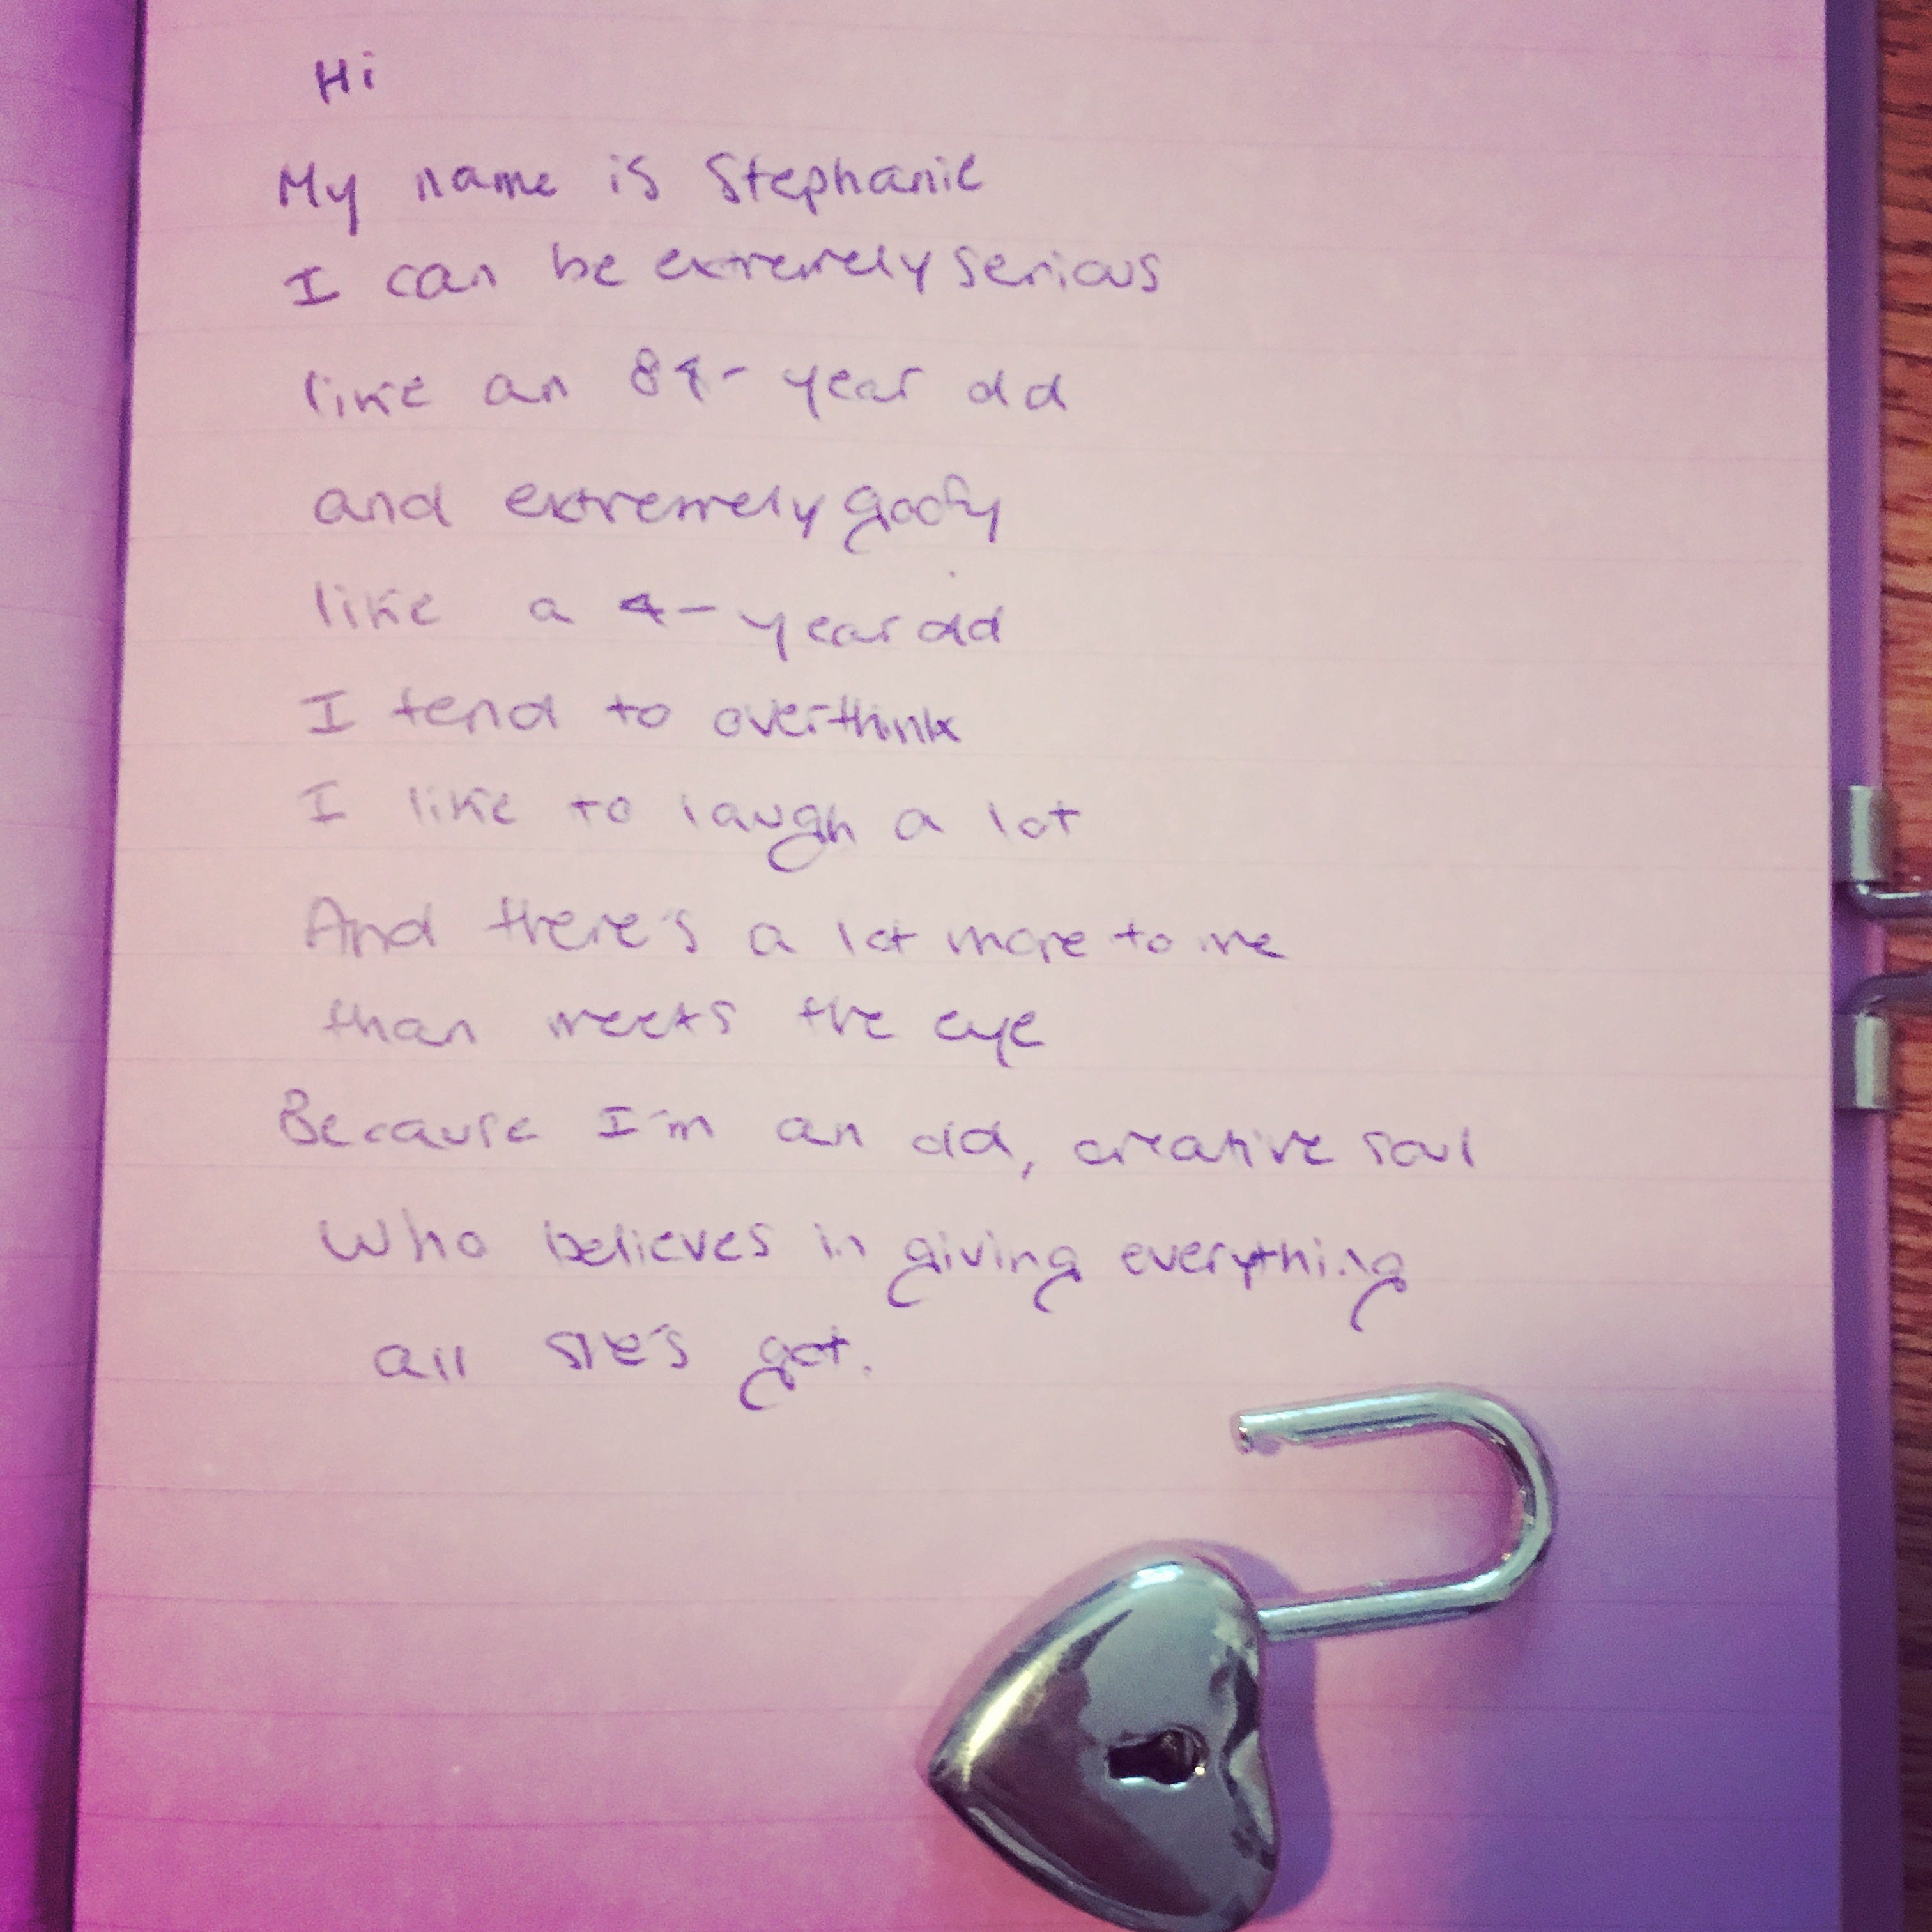 Hi
My name is Stephanie
I can be extremely serious
like an 84-year old
and extremely goofy
like a 4-year old
I tend to overthink
I like to laugh a lot
And there's a lot more to me
than meets the eye
Because I'm an old, creative soul
Who believes in giving everything
all she's got.